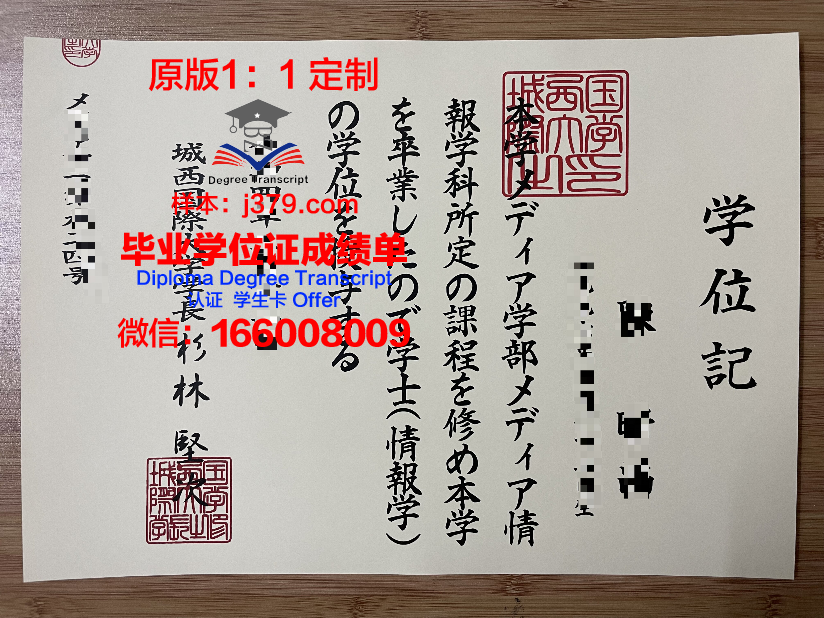 学位記
本学メディア学部メディア情
報学科所定の課程を修め本学
を卒業したので学士(情報学)
の学位を授与する
城西国際大学学長 杉林 堅次
原版1：1 定制
Degree Transcript
样本：j379.com
毕业学位证成绩单
Diploma Degree Transcript
认证 学生卡 Offer
微信：166008009